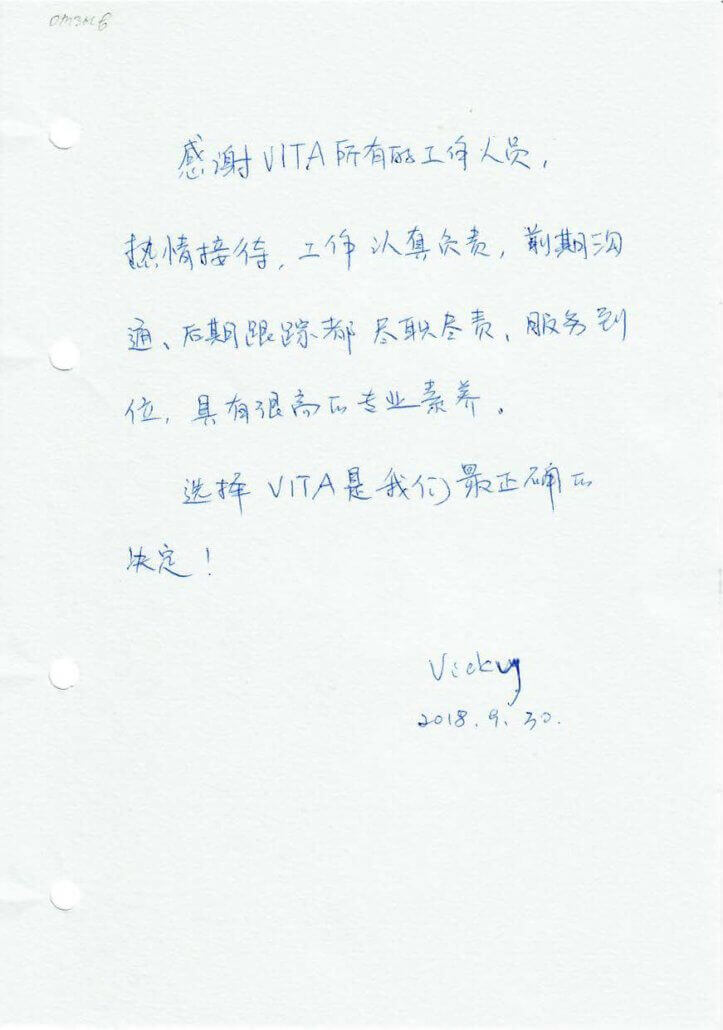 感谢VITA所有的工作人员,
热情接待,工作认真负责,前期沟
通、后期跟踪都尽职尽责、服务到
位,具有很高的专业素养。
选择VITA是我们最正确的
决定!
Vicky
2018.9.30.